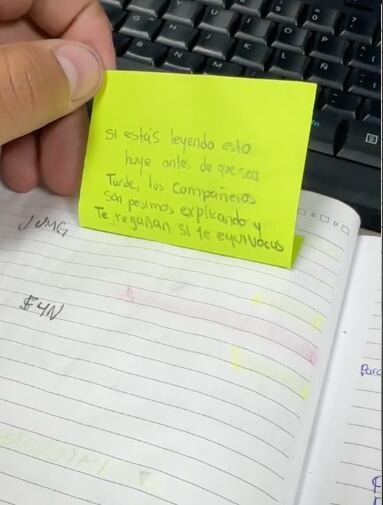 Si estás leyendo esto
huye antes de que sea
Tarde, los compañeros
son pesimos explicando y
Te regañan si te equivocas
JUMG
$4N
Para